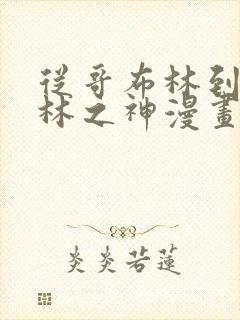 從哥布林到
林之神漫畫
炎炎若蓮